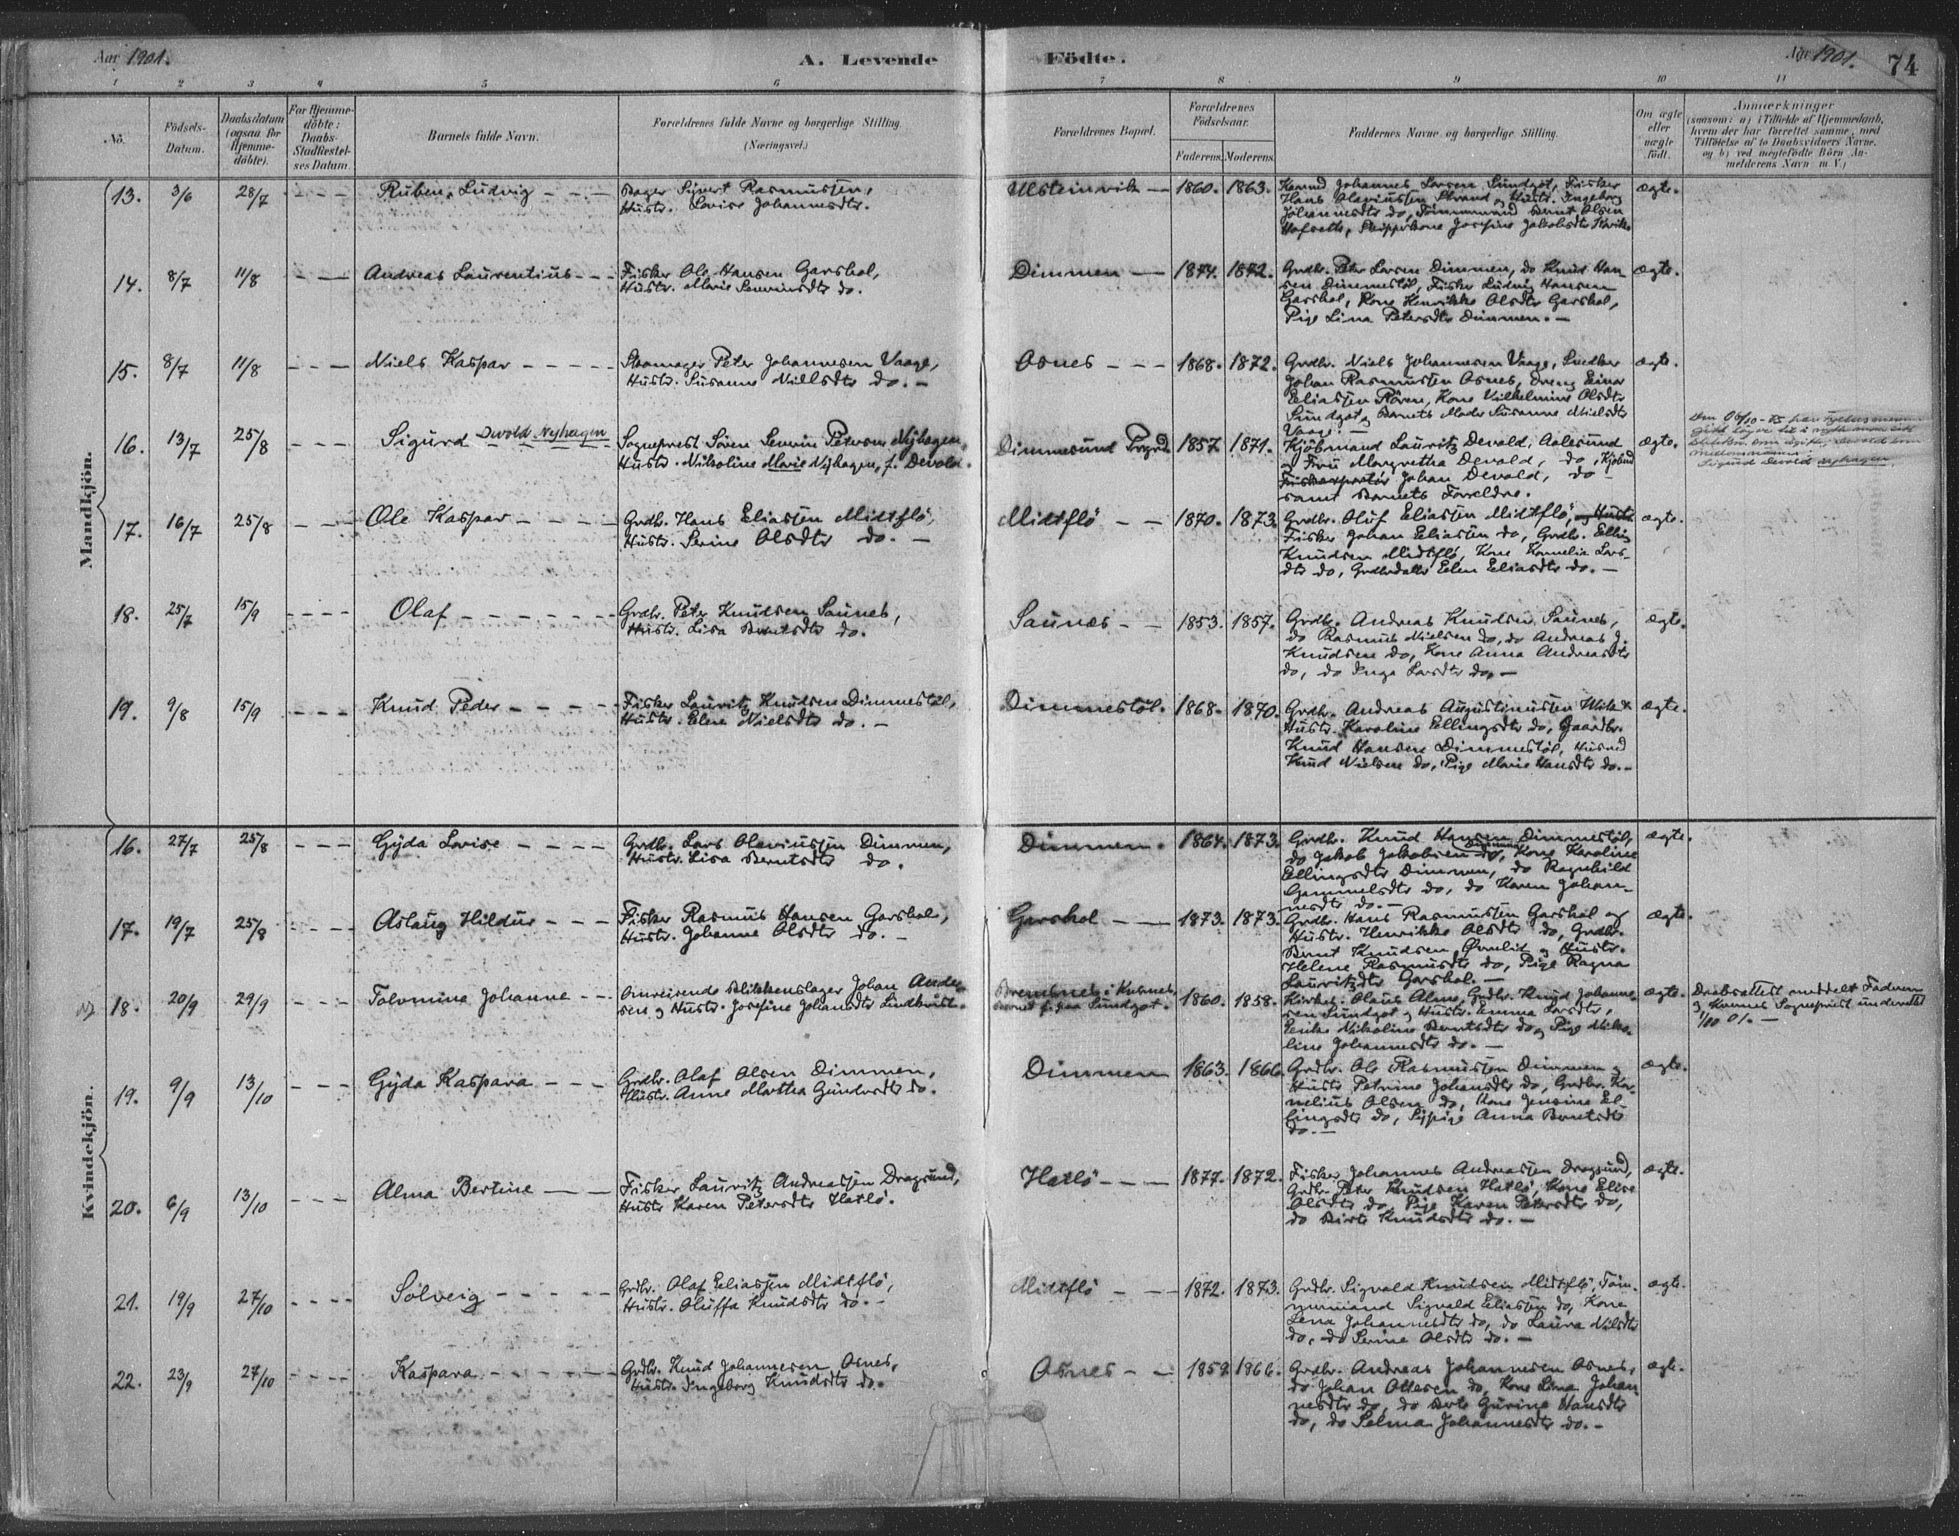 Aar 1901.
A. Levende
Födte.
Aar 1901.
74
1 2 3 4 5 6 7 8 9 10 11
No.
Födsels-
Datum.
Daabsdatum
(ogsaa for
Hjemme-
döbte).
For Hjemme-
döbte:
Daabs-
Stadfæstel-
ses Datum.
Barnets fulde Navn.
Forældrenes fulde Navne og borgerlige Stilling.
(Næringsvei.)
Forældrenes Bopæl.
Forældrenes
Födselsaar.
Faderens. Moderens.
Faddernes Navne og borgerlige Stilling.
Om ægte
eller
uægte
födt.
Anmærkninger
(saasom: a) i Tilfælde af Hjemmedaab,
hvem der har forrettet samme, med
Tilföielse af to Daabsvidners Navne.
og b) ved uægtefödte Börn An-
melderens Navn m. V.)
Mandkjön.
13. 3/6 28/7
Ruben Ludvig
Bager Sivert Rasmussen,
Hustr. Lovise Johannesdtr.
Ulsteinvik
1860. 1863.
Johannes Larsen Sundgot, Fisker
Hans Olaviussen Strand og Hustr. Ingeborg
Johannesdtr do, Tömmermand Bernt Olsen
Hofseth, Skipperkone Josefine Jakobsdtr
ægte.
14. 8/7 11/8
Andreas Laurentius
Fisker Ole Hansen Garshol,
Hustr. Marie Severinsdtr do.
Dimmen
1874. 1872.
Grdbr. Peter Larsen Dimmen, do Knud Han
sen Dimmestöl, Fisker Ludvig Hansen
Garshol, Kone Henrikke Olsdtr Garshol,
Pige Lina Petersdtr Dimmen.
ægte.
15. 8/7 11/8
Niels Kaspar
Skomager Peter Johannesen Vaage,
Hustr. Susanne Nielsdtr do.
Osnes
1868. 1872.
Grdbr. Niels Johannesen Vaage, Snedker
Johan Rasmussen Osnes, Dreng Einar
Eliassen Rören, Kone Vilhelmine Olsdtr
Sundgot og Barnets Moder Susanne Nielsdtr
Vaage.
ægte.
16. 13/7 25/8
Sigurd Devold Nyhagen
Sogneprest Sören Severin Petersen Nyhagen,
Hustr. Nikoline Marie Nyhagen, f. Devold.
Dimmesund Prgrd
1857 1871.
Kjöbmand Lauritz Devold, Aalesund
og Frue Margretha Devold, do, Kjöbmd
Fiskexportör Johan Devold, do
samt Barnets Forældre.
ægte.
Sigurd Devold Nyhagen.
17. 16/7 25/8
Ole Kaspar
Grdbr. Hans Eliassen Midtflö,
Hustr. Serine Olsdtr do.
Midtflö
1870. 1873.
Grdbr. Oluf Eliassen Midtflö, og Hustr.
Fisker Johan Eliassen do, Grdbr. Elling
Knudsen Midtflö, Kone Kornelia Lars-
dtr do, Grdbrdatter Elen Eliasdtr do.
ægte.
18. 25/7 15/9
Olaf
Grdbr. Peter Knudsen Saunes,
Hustr. Lisa Berntsdtr do.
Saunæs
1853. 1857.
Grdbr. Andreas Knudsen Saunes,
do Rasmus Nielsen do, do Andreas J.
Knudsen do, Kone Anna Andreasdtr
do, do Inga Larsdtr do.
ægte.
19. 9/8 15/9
Knud Peder
Fisker Lauritz Knudsen Dimmestöl,
Hustr. Elen Nielsdtr do.
Dimmestöl.
1868. 1870.
Grdbr. Andreas Augustinussen
Hustr. Karoline Ellingsdtr do, Gaardbr.
Knud Hansen Dimmestöl, Husmd
Knud Nielsen do, Pige Marie Hansdtr do.
ægte.
Kvindekjön.
16. 27/7 25/8
Gyda Lovise
Grdbr. Lars Olaviussen Dimmen,
Hustr. Lisa Berntsdtr do.
Dimmen.
1864. 1873.
Grdbr. Knud Hansen Dimmestöl,
do Jakob Jakobsen do, Kone Karoline
Ellingsdtr Dimmen, do Ragnhild
Gammelsdtr do, do Karen Johan-
nesdtr do.
ægte.
17. 19/7 25/8
Aslaug Hildur
Fisker Rasmus Hansen Garshol,
Hustr. Johanne Olsdtr do.
Garshol
1873. 1873.
Grdbr. Hans Rasmussen Garshol og
Hustr. Henrikke Olsdtr do, Grdbr.
Bernt Knudsen Övrelid og Hustr.
Helene Rasmusdtr do, Pige Ragna
Lauritzdtr Garshol.
ægte.
18. 20/9 29/9
Tolomine Johanne
Omreisende Blikkenslager Johan Ander-
sen og Hustr. Josefine Johansdtr Lindkvist.
Sundgot.
1860. 1858.
Kirkes. Olaus Alme, Grdbr. Knud Johanne-
sen Sundgot og Hustr. Emma Larsdtr,
Enke Nikoline Berntsdtr do og Pige Niko-
line Johannesdtr do.
ægte.
Daabsattest meddelt Faderen
og Kvernes Sogneprest underrettet
1/10 01.
19. 9/9 13/10
Gyda Kaspara
Grdbr. Olaf Olsen Dimmen,
Hustr. Anne Martha Gundersdtr do.
Dimmen
1863. 1866.
Grdbr. Ole Rasmussen Dimmen og
Hustr. Petrine Johansdtr do, Grdbr. Kor-
nelius Olsen do, Kone Jensine El-
lingsdtr do, Sypige Anna Berntsdtr
do.
ægte.
20. 6/9 13/10
Alma Bertine
Fisker Lauritz Andreassen Dragsund,
Hustr Karen Petersdtr Hatlö.
Hatlö
1877. 1872.
Fisker Johannes Andreassen Dragsund,
Grdbr. Peter Knudsen Hatlö, Kone Elise
Olsdtr do, Pige Karen Petersdtr do,
do Birte Knudsdtr do.
ægte.
21. 19/9 27/10
Solveig
Grdbr. Olaf Eliassen Midtflö,
Hustr. Oluffa Knudsdtr do.
Midtflö
1872. 1873.
Grdbr. Sigvald Knudsen Midtflö, Töm-
mermand Sigvald Eliassen do, Kone
Lena Johannesdtr do, do Laura Nilsdtr
do, do Serine Olsdtr do.
ægte.
22. 23/9 27/10
Kaspara
Grdbr. Knud Johannesen Osnes,
Hustr. Ingeborg Knudsdtr do.
Osnes
1859 1866.
Grdbr. Andreas Johannesen Osnes,
do Johan Ottesen do, Kone Lina Johan
nesdtr do, do Berte Gurine Hansdtr
do, do Selma Johannesdtr do.
ægte.